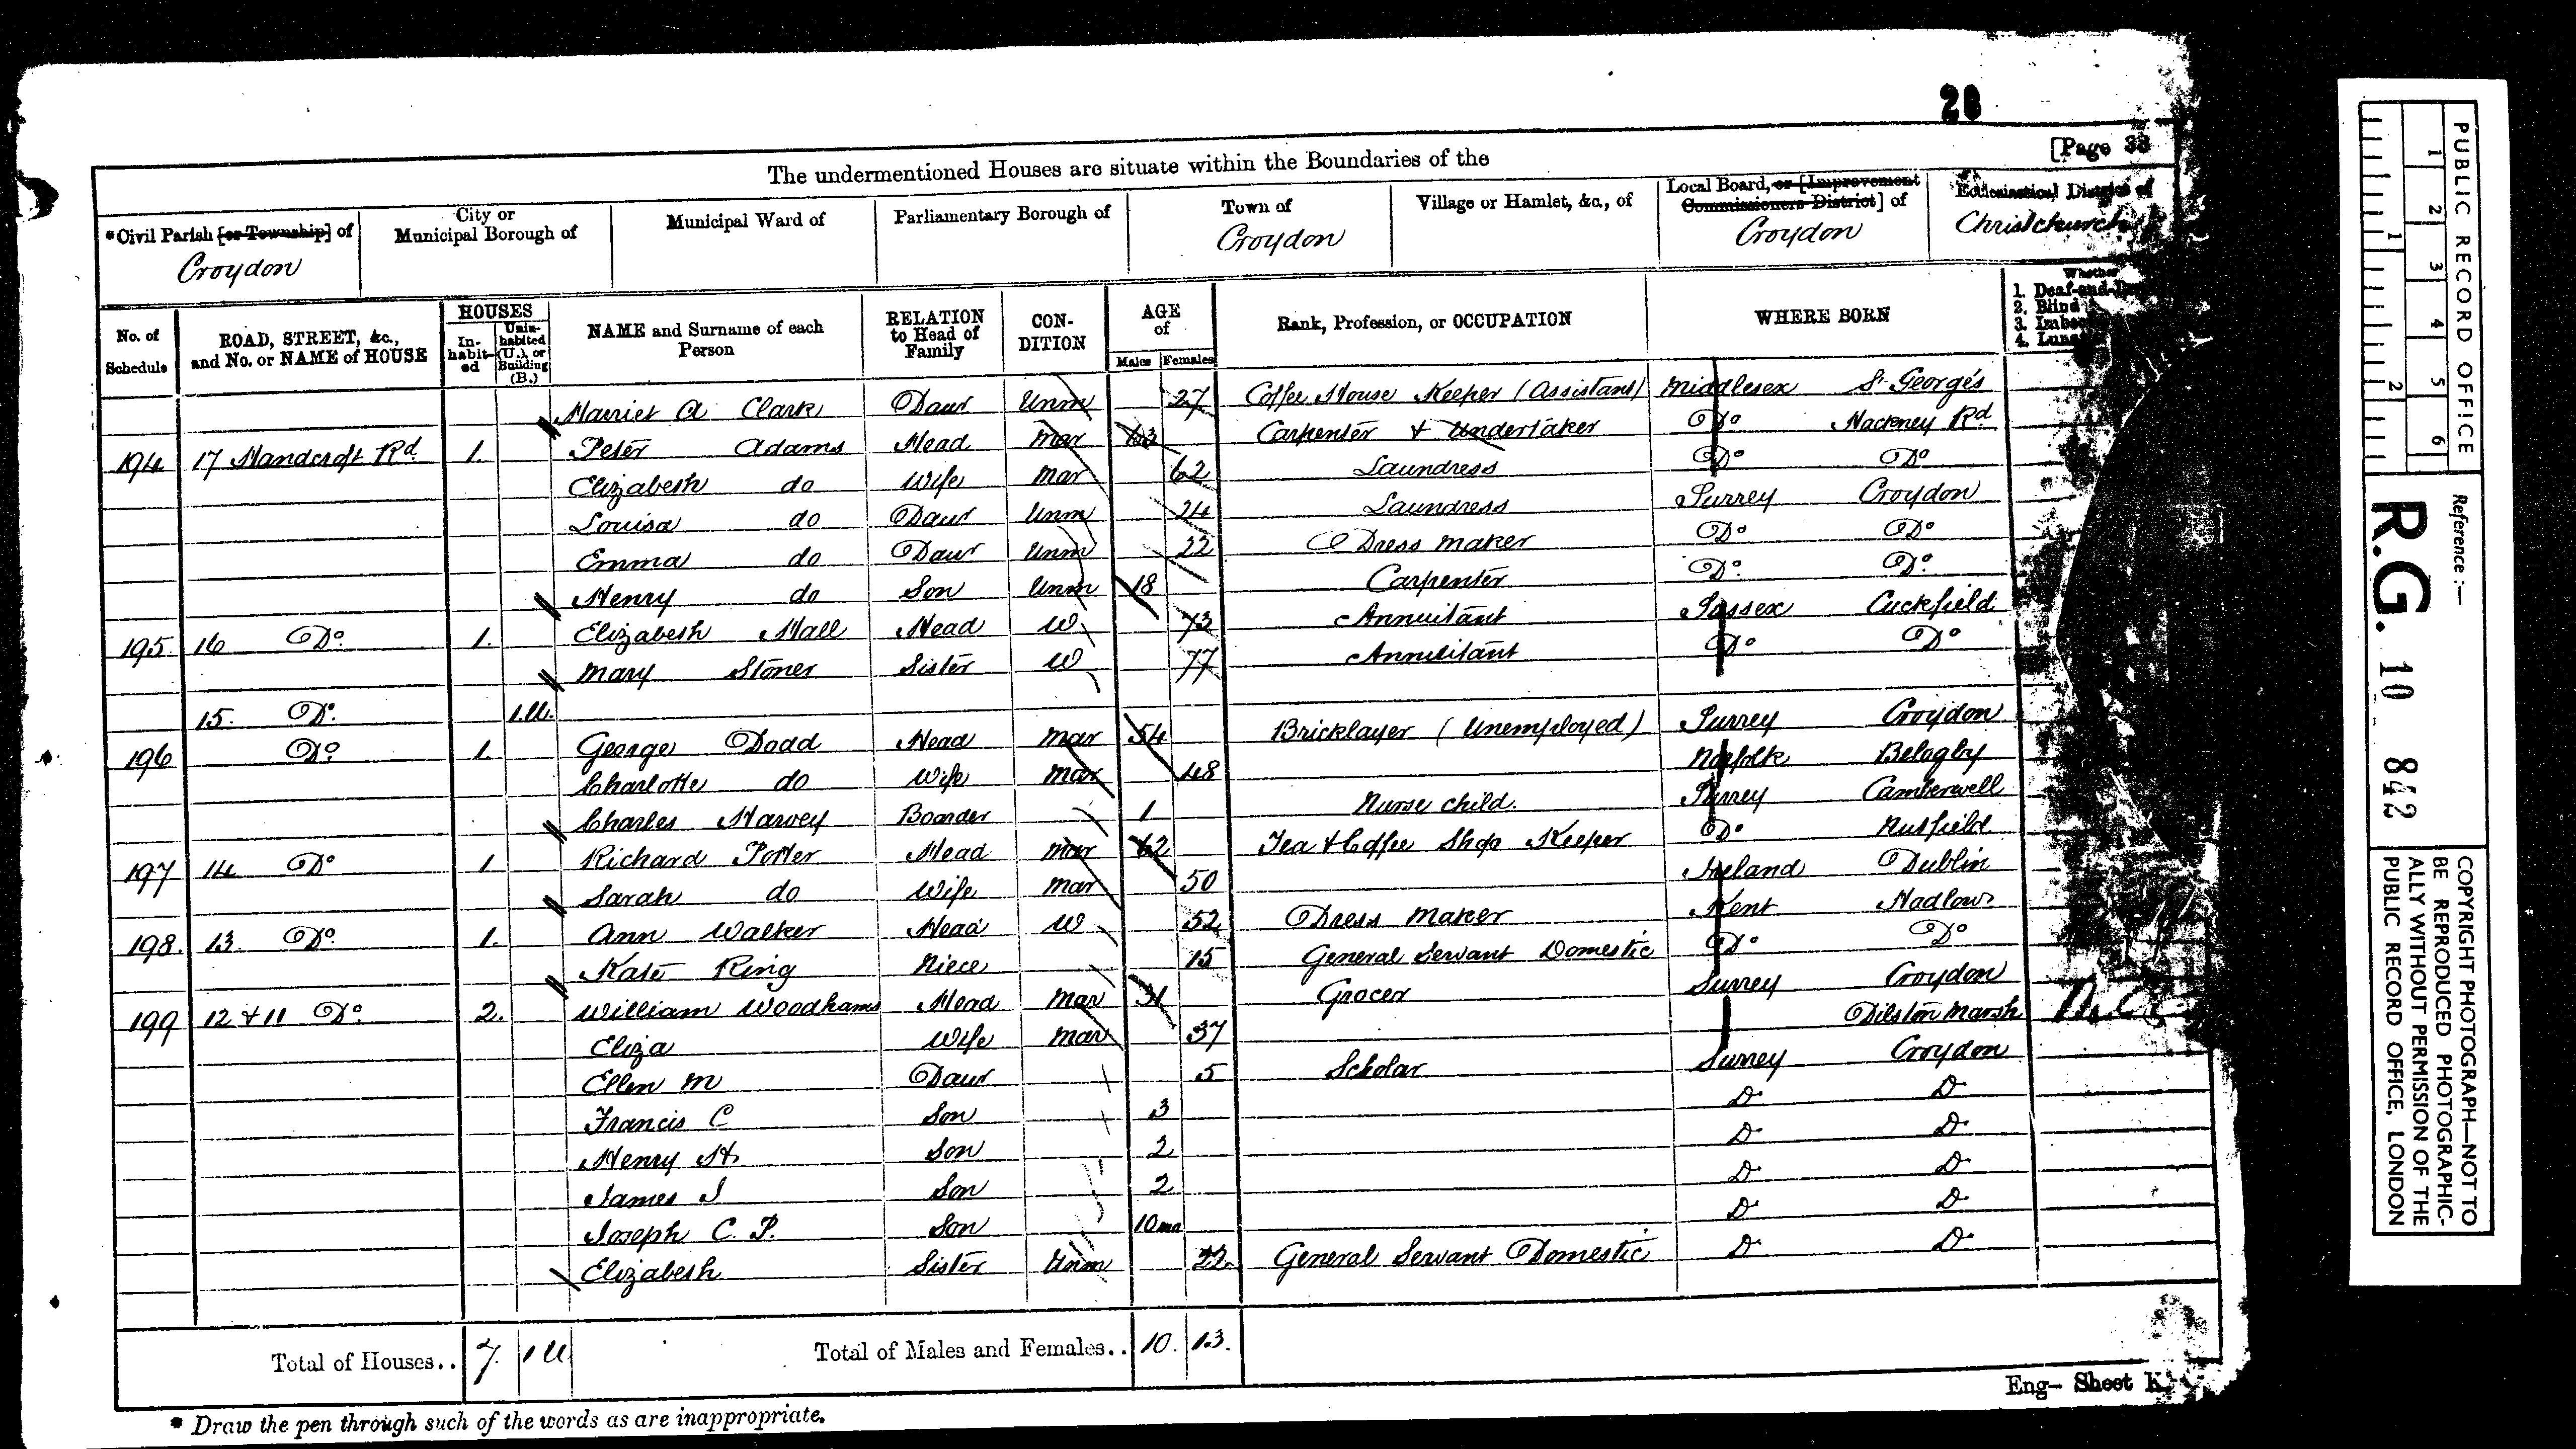 28
[Page 33
The undermentioned Houses are situate within the Boundaries of the
*Civil Parish [or Township] of
Croydon
City or
Municipal Borough of
Municipal Ward of
Parliamentary Borough of
Town of
Croydon
Village or Hamlet, &c., of
Local Board, or [Improvement
Commissioners District] of
Croydon
Ecclesiastical District of
Christchurch
No. of
Schedule
ROAD, STREET, &c.,
and No. or NAME of HOUSE
HOUSES
In-
habit-
ed
Unin-
habited
(U.), or
Building
(B.)
NAME and Surname of each
Person
RELATION
to Head of
Family
CON-
DITION
AGE
of
Males Females
Rank, Profession, or OCCUPATION
WHERE BORN
Whether
1. Deaf-and-
2. Blind
3.
4.
Harriet A Clark Daur Unm 27 Coffee House Keeper (Assistant) Middlesex St. George's
194 17 Handcroft Rd. 1. Peter Adams Head Mar 63 Carpenter & Undertaker Do Hackney Rd
Elizabeth do Wife Mar 62 Laundress Do Do
Louisa do Daur Unm 24 Laundress Surrey Croydon
Emma do Daur Unm 22 Dress maker Do Do
Henry do Son Unm 18 Carpenter Do Do
195. 16 Do. 1. Elizabeth Hall Head W 73 Annuitant Sussex Cuckfield
Mary Stoner Sister W 77 Annuitant Do Do
15. Do. 1.U.
196 Do. 1. George Dodd Head Mar 54 Bricklayer (Unemployed) Surrey Croydon
Charlotte do Wife Mar 48 Norfolk
Charles Harvey Boarder 1 Nurse child. Surrey Camberwell
197 14 Do 1 Richard Potter Head Mar 62 Tea & Coffee Shop Keeper Do Nutfield
Sarah do Wife Mar 50 Ireland Dublin
198. 13. Do. 1. Ann Walker Head W 52 Dress maker Kent Hadlow
Kate King Niece 15 General Servant Domestic Do Do
199 12 & 11 Do. 2. William Woodhams Head Mar 31 Grocer Surrey Croydon
Eliza Wife Mar 37 Dilston Marsh
Ellen M Daur 5 Scholar Surrey Croydon
Francis C Son 3 D. D.
Henry H. Son 2 D. D.
James J Son 2 D. D.
Joseph C. P. Son 10mo D. D.
Elizabeth Sister Unm 22. General Servant Domestic D. D.
Total of Houses.. 7. 1U
Total of Males and Females.. 10. 13.
Eng— Sheet K.
* Draw the pen through such of the words as are inappropriate.
PUBLIC RECORD OFFICE
1 2 3 4 5 6
1 2
Reference :—
R.G. 10 842
COPYRIGHT PHOTOGRAPH—NOT TO
BE REPRODUCED PHOTOGRAPHIC-
ALLY WITHOUT PERMISSION OF THE
PUBLIC RECORD OFFICE, LONDON